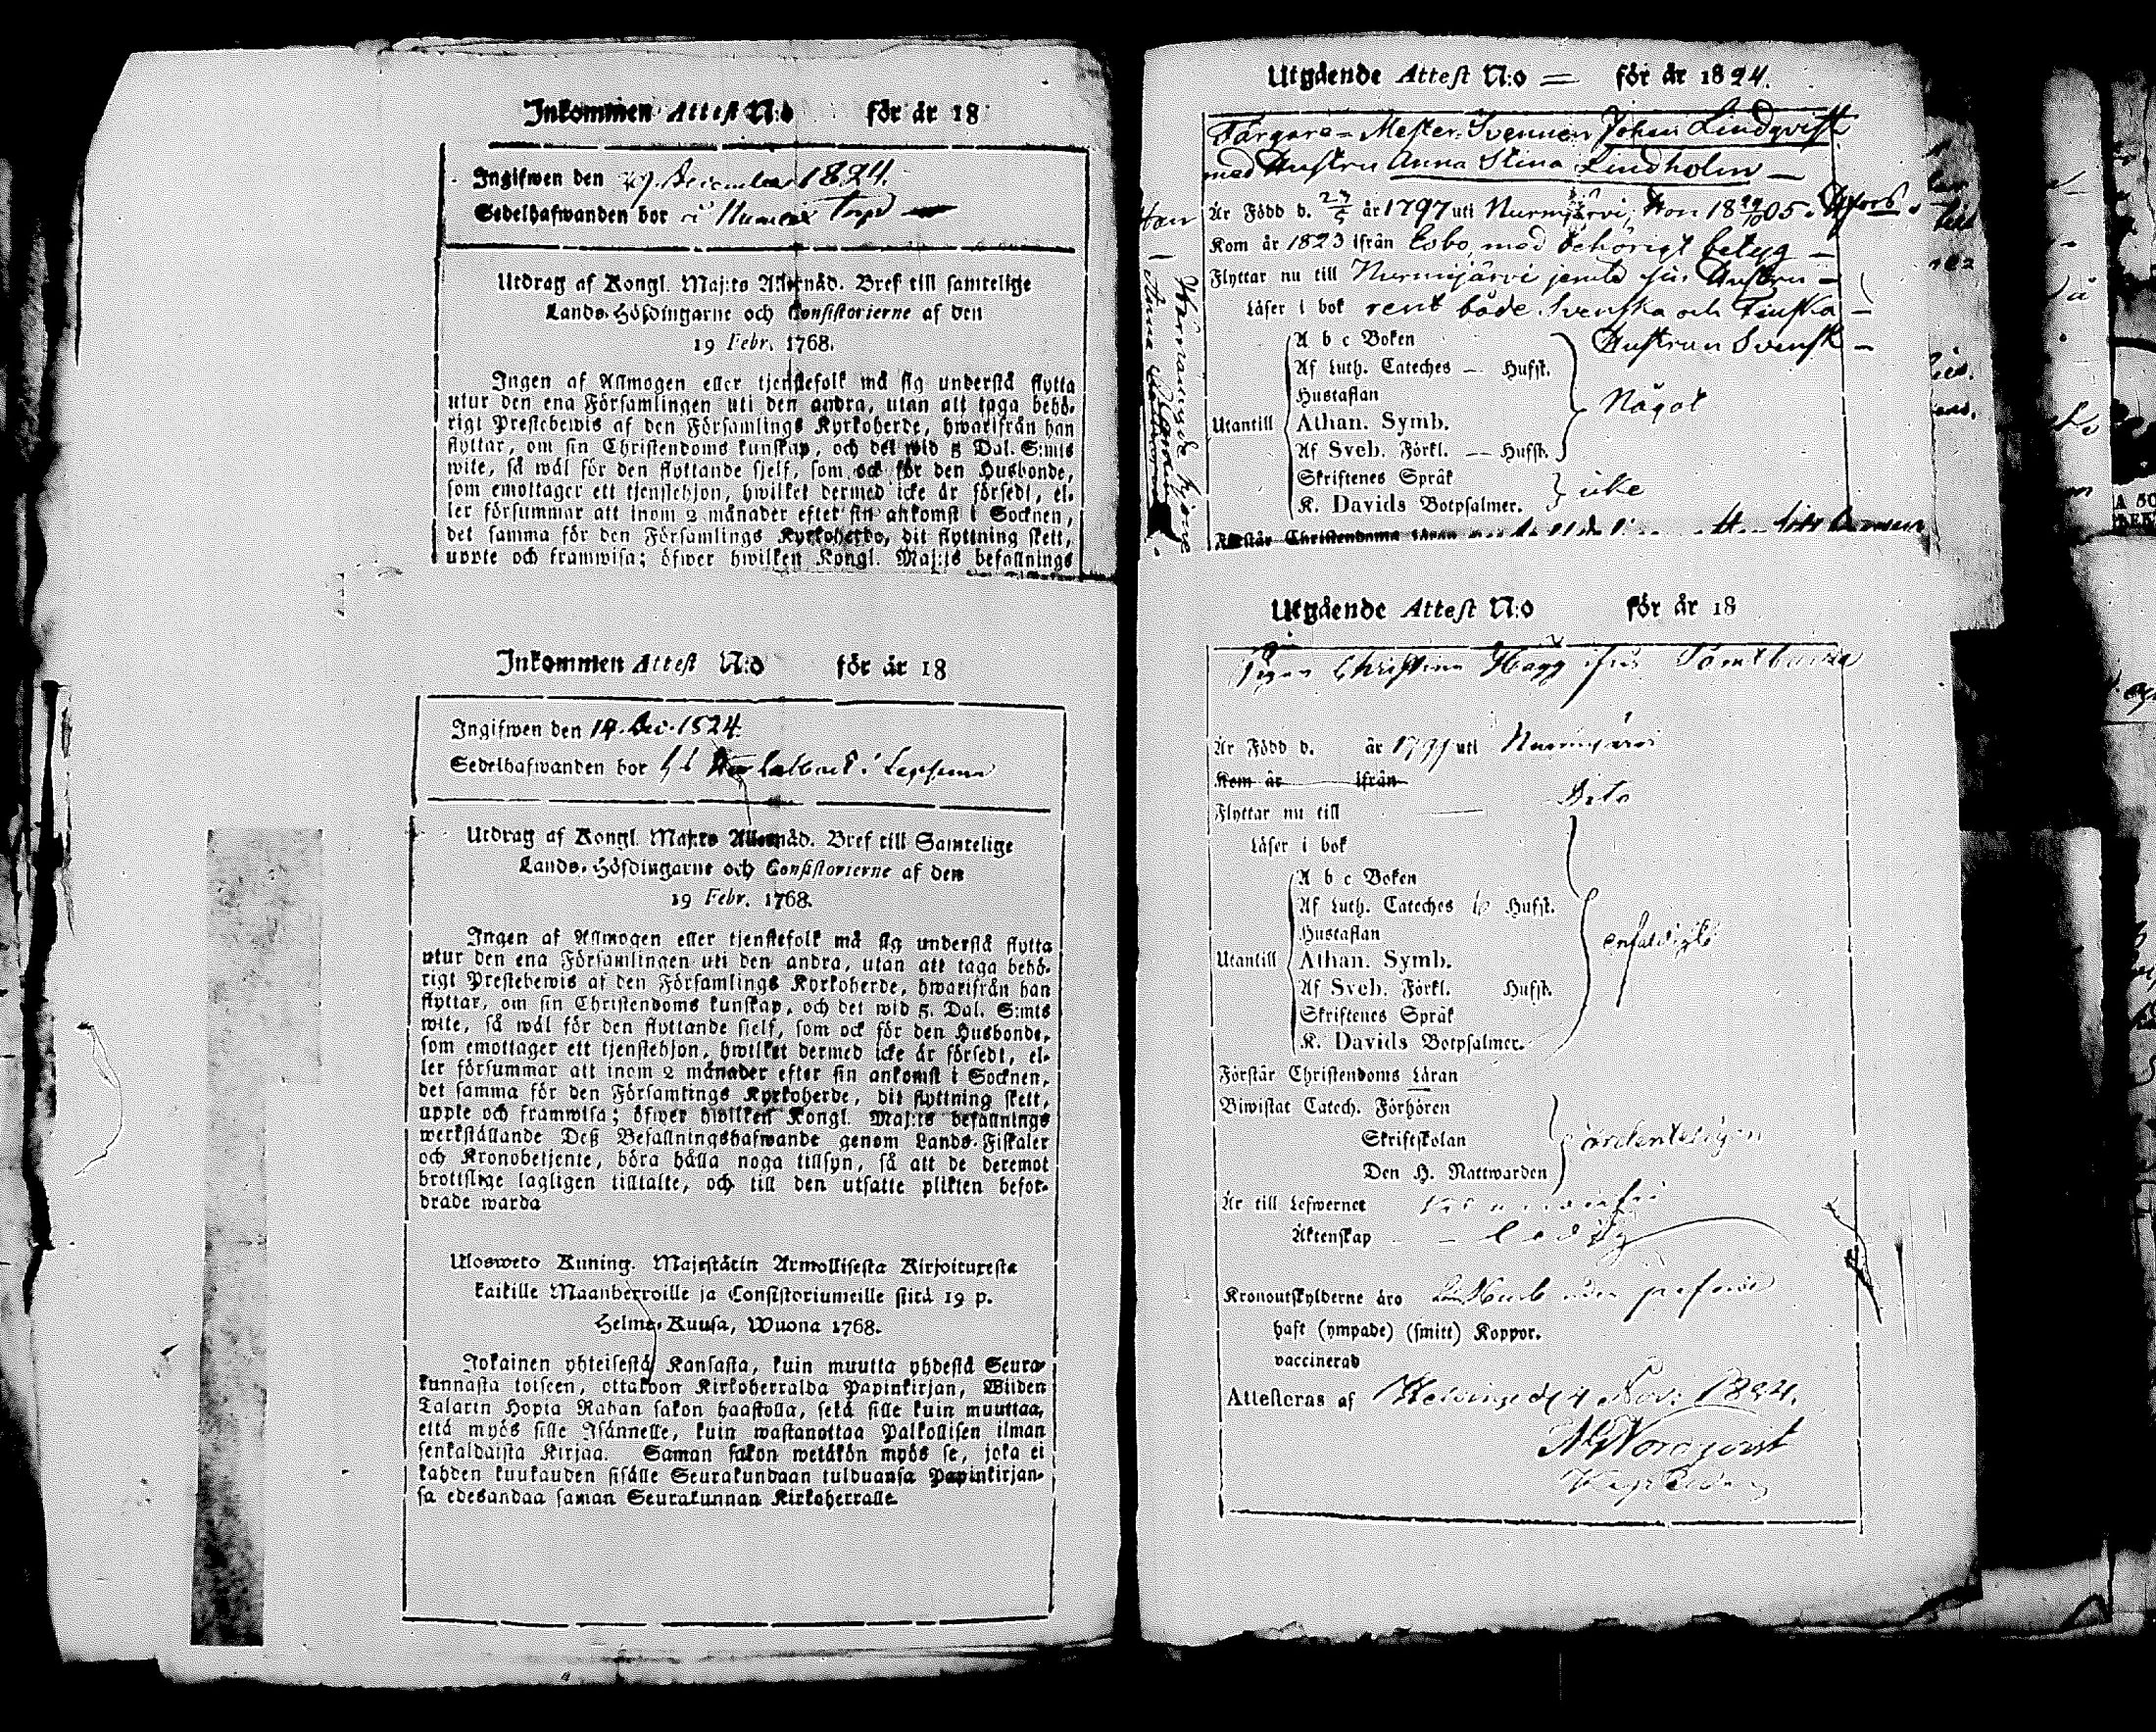 Inkommen Attest N:o för år 18
Ingifwen den 29 December 1824.
Sedelhafwanden bor i Numela Torp
Utdrag af Kongl. Maj:ts Allernåd. Bref till samtelige
Lands-Höfdingarne och Consistorierne af den
19 Febr. 1768.
Ingen af Allmogen eller tjenstefolk må sig understå flytta
utur den ena Församlingen uti den andra, utan att taga behö-
rigt Prestebewis af den Församlings Kyrkoherde, hwarifrån han
flyttar, om sin Christendoms kunskap, och det wid 5 Dal. S:mts
wite, så wäl för den flyttande sjelf, som ock för den Husbonde,
som emottager ett tjenstehjon, hwilket dermed icke är försedt, el-
ler försummar att inom 2 månader efter sin ankomst i Socknen,
det samma för den Församlings Kyrkoherde, dit flyttning skett,
uppte och framwisa; öfwer hwilken Kongl. Maj:ts befallnings
Inkommen Attest N:o för år 18
Ingifwen den 14. Dec. 1824.
Sedelhafwanden bor i Lepsama
Utdrag af Kongl. Maj:ts Allernåd. Bref till Samtelige
Lands-Höfdingarne och Consistorierne af den
19 Febr. 1768.
Ingen af Allmogen eller tjenstefolk må sig understå flytta
utur den ena Församlingen uti den andra, utan att taga behö-
rigt Prestebewis af den Församlings Kyrkoherde, hwarifrån han
flyttar, om sin Christendoms kunskap, och det wid 5. Dal. S:mts
wite, så wäl för den flyttande sielf, som ock för den Husbonde,
som emottager ett tjenstehjon, hwilket dermed icke är försedt, el-
ler försummar att inom 2 månader efter sin ankomst i Socknen,
det samma för den Församlings Kyrkoherde, dit flyttning skett,
uppte och framwisa; öfwer hwilken Kongl. Maj:ts befallnings
werkställande Deß Befallningshafwande genom Lands-Fiskaler
och Kronobetjente, böra hålla noga tillsyn, så att de deremot
brottslige lagligen tilltalte, och till den utsatte plikten befor-
drade warda
Ulosweto Kuning. Majestätin Armollisesta Kirjoituxesta
kaikille Maanherroille ja Consistoriumeille siitä 19 p.
Helme-Kuusa, Wuona 1768.
Jokainen yhteisestä Kansasta, kuin muutta yhdestä Seura-
kunnasta toiseen, ottakoon Kirkoherralda Papinkirjan, Wiiden
Talarin Hopia Rahan sakon haastolla, sekä sille kuin muuttaa,
että myös sille Isännelle, kuin wastanottaa Palkollisen ilman
senkaldaista Kirjaa. Saman sakon wetäkön myös se, joka ei
kahden kuukauden sisälle Seurakundaan tulduansa Papinkirjan-
sa edesandaa saman Seurakunnan Kirkoherralle
Utgående Attest N:o — för år 1824.
Färgare-Mester-Svennen Johan Lindqvist
med Hustru Anna Stina Lindholm —
Han Är Född d. 27/5 år 1797 uti Nurmijärvi, Hon 18 29/10 05.
Kom år 1823 ifrån Esbo, med behörigt betyg —
Flyttar nu till Nurmijärvi jemte sin Hustru —
Läser i bok rent både Svenska och Finska —
Hustrun Svensk —
A b c Boken
Af Luth. Cateches — Hufst.
Hustaflan
Utantill Athan. Symb. Något
Af Sveb. Förkl. — Hufst.
Skriftenes Språk
K. Davids Botpsalmer. icke
Förstår Christendoms Läran
Utgående Attest N:o för år 18
Pigan Christina Hagg från Tomtbacka
Är Född d. år 1797 uti Nurmijärvi
Kom år ifrån
Flyttar nu till — Dito
Läser i bok
A b c Boken
Af Luth. Cateches Hufst.
Hustaflan enfaldigt
Utantill Athan. Symb.
Af Sveb. Förkl. Hufst.
Skriftenes Språk
K. Davids Botpsalmer.
Förstår Christendoms Läran
Biwistat Catech. Förhören
Skriftskolan ordenteligen
Den H. Nattwarden
Är till Lefwernet
Äktenskap — ledig
Kronoutskylderne äro
haft (ympade) (smitt) Koppor.
vaccinerad
Attesteras af Helsinge d. 4 Nov: 1824.
Nordqvist